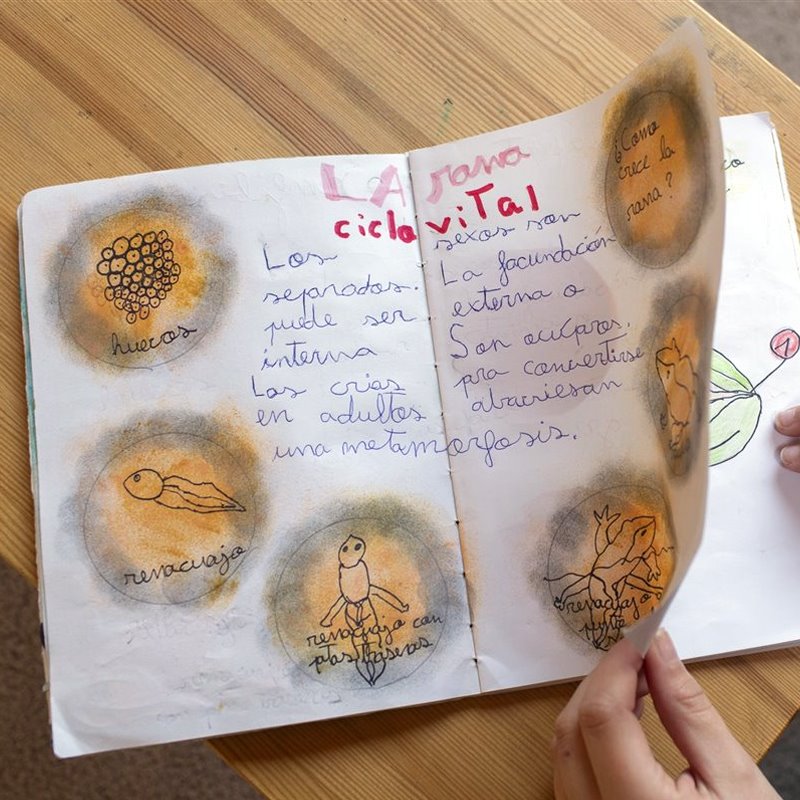 LA rana
ciclo vital
Los sexos son
separados. La facundación
puede ser externa o
interna Son ovíparos.
Las crías pra convertirse
en adultos atraviesan
una metamorfosis.
huevos
renacuajo
renacuajo con
ptas traseras
renacuajo
¿Como
crece la
rana?
1